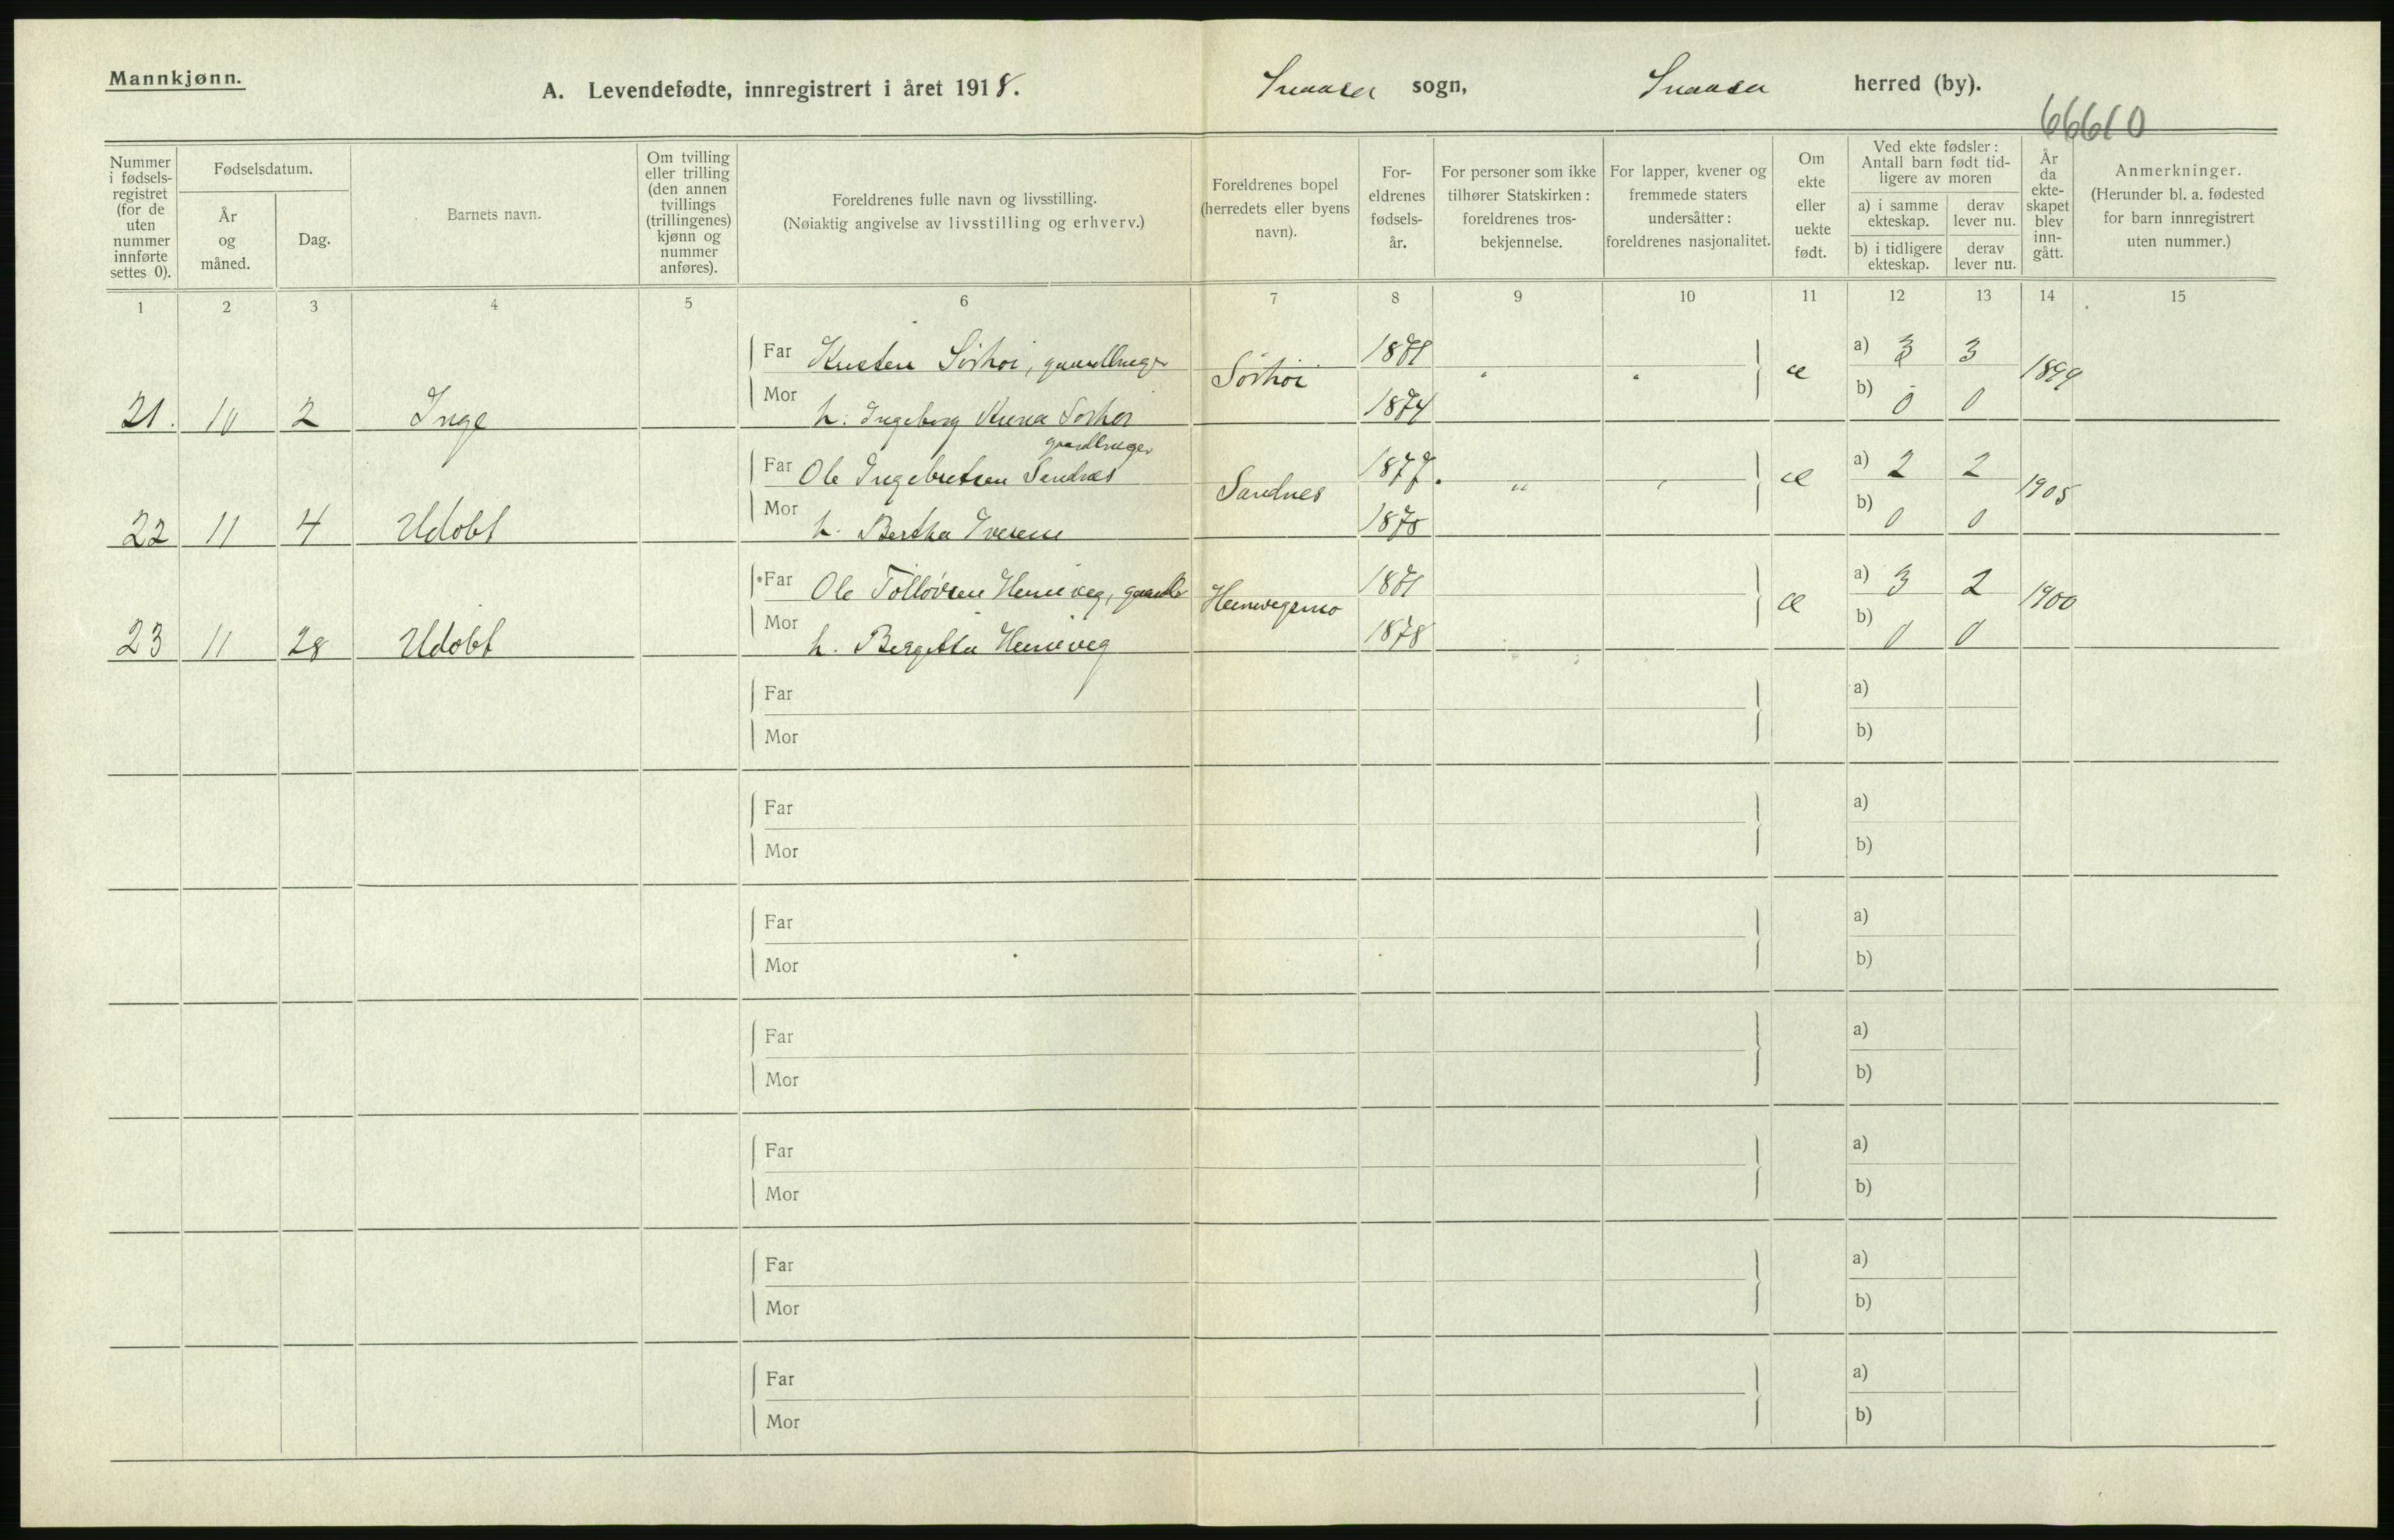 Mannkjønn.
A. Levendefødte, innregistrert i året 1918.
Snaasa sogn, Snaasa herred (by).
66610
Nummer i fødsels-registret (for de uten nummer innførte settes 0).
Fødselsdatum.
År og måned.
Dag.
Barnets navn.
Om tvilling eller trilling (den annen tvillings (trillingenes) kjønn og nummer anføres).
Foreldrenes fulle navn og livsstilling.
(Nøiaktig angivelse av livsstilling og erhverv.)
Foreldrenes bopel (herredets eller byens navn).
For-eldrenes fødsels-år.
For personer som ikke tilhører Statskirken: foreldrenes tros-bekjennelse.
For lapper, kvener og fremmede staters undersåtter: foreldrenes nasjonalitet.
Om ekte eller uekte født.
Ved ekte fødsler: Antall barn født tid-ligere av moren
a) i samme ekteskap.
derav lever nu.
b) i tidligere ekteskap.
derav lever nu.
År da ekte-skapet blev inn-gått.
Anmerkninger.
(Herunder bl. a. fødested for barn innregistrert uten nummer.)
1 2 3 4 5 6 7 8 9 10 11 12 13 14 15
Far Sørhoi, gaardbruger 18 a) 3 3
21. 10 2 Inge Mor h. Ingeborg Anna Sørhoi Sørhoi 1874 " " æ b) 0 0 1899
gaardbruger
Far Ole Ingebretsen Sandnes 1877. a) 2 2
22 11 4 Udøbt Mor h. Bertha Iversen Sandnes 187 " æ b) 0 0 1905
Far Ole Tolløvsen gaardb 18 a) 3 2
23 11 28 Udøbt Mor h. 1878 æ b) 0 0 1900
Far a)
Mor b)
Far a)
Mor b)
Far a)
Mor b)
Far a)
Mor b)
Far a)
Mor b)
Far a)
Mor b)
Far a)
Mor b)